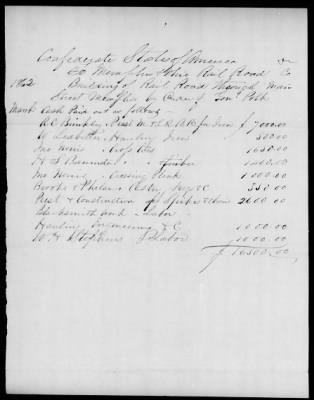 Confederate States of America Dr
To Memphis & Ohio Rail Road Co
1862 Building of Rail Road through Main
Street Memphis by Order of Genl Polk
March Cash Paid out as follows
R C Brinkley Prest M & C R R for Iron $ 7000.00
W Ledbetter Hauling Iron 500.00
Jno Cross Ties 1050.00
H S Timber 1500.00
Jno Crossing Plank 1000.00
Brooks & Phelan &C 350.00
& Construction of Spikes & Chairs 2600.00
Blacksmith work & Labor
Hauling Engineering &C 1000.00
W H Stephens Labor 1000.00
$ 16500.00